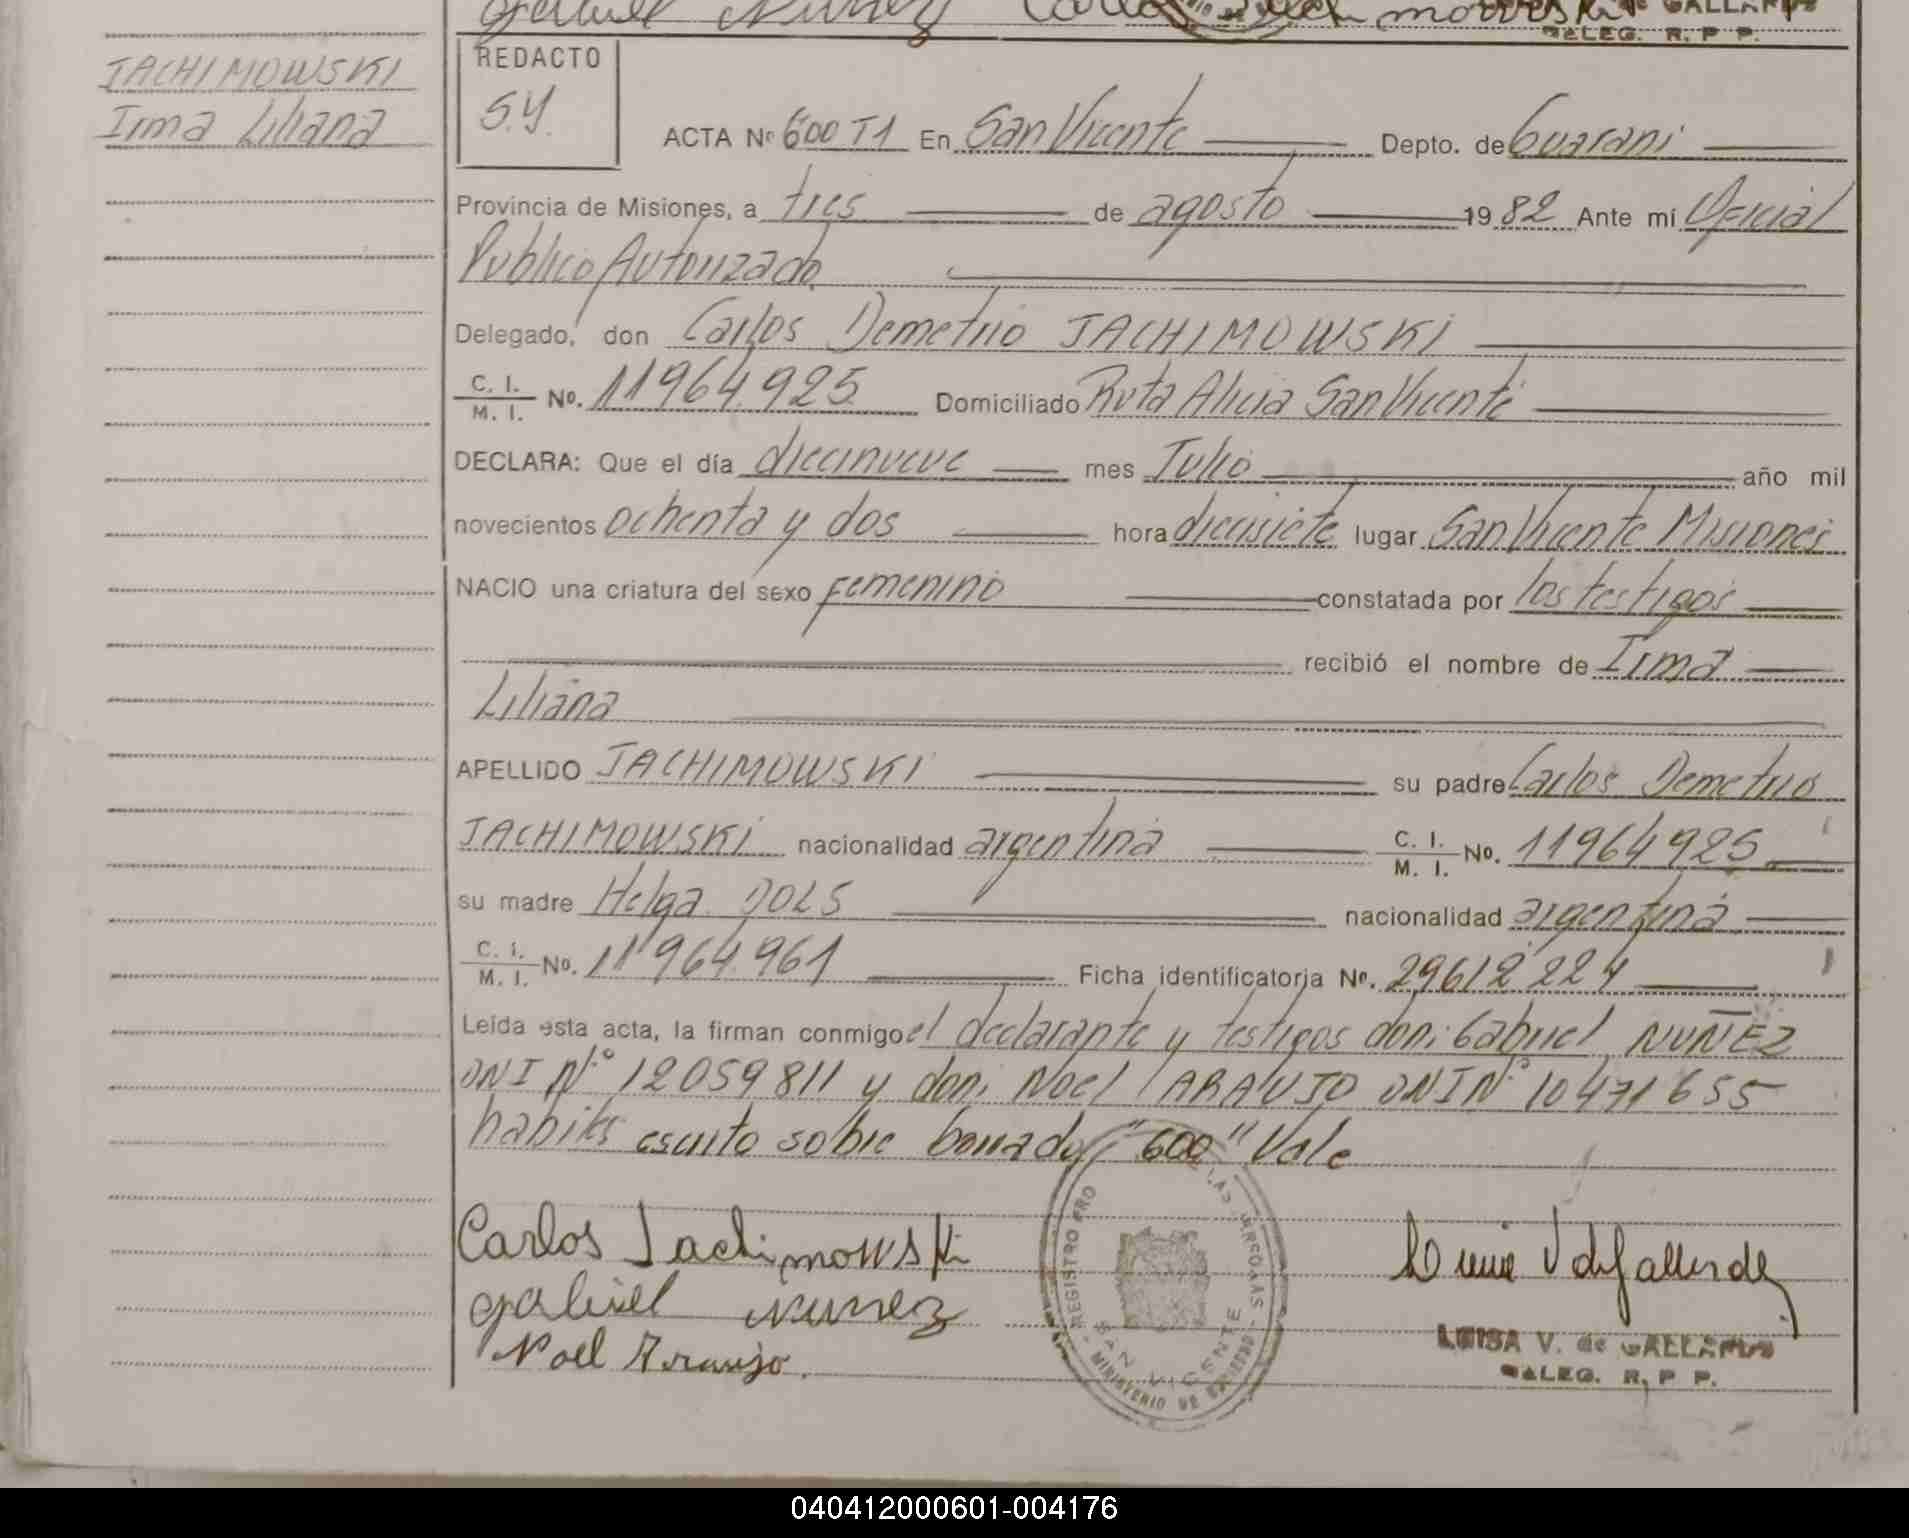 Gabriel Nuñez Carlos Jachimowski
GALLARDO
DELEG. R. P P.
JACHIMOWSKI
Irma Liliana
REDACTO
S.Y.
ACTA Nº 600 T1 En San Vicente Depto. de Guarani
Provincia de Misiones, a tres de agosto 1982 Ante mi Oficial
Publico Autorizado
Delegado, don Carlos Demetrio JACHIMOWSKI
C. I. / M. I. No. 11964.925 Domiciliado Ruta Alicia San Vicente
DECLARA: Que el día diecinueve mes Julio año mil
novecientos ochenta y dos hora diecisiete lugar San Vicente Misiones
NACIO una criatura del sexo femenino constatada por los testigos
recibió el nombre de Irma
Liliana
APELLIDO JACHIMOWSKI su padre Carlos Demetrio
JACHIMOWSKI nacionalidad argentina C. I. / M. I. No. 11964925
su madre Helga DOLS nacionalidad argentina
C. I. / M. I. No. 11964.961 Ficha identificatoria Nº. 29612224
Leída esta acta, la firman conmigo el declarante y testigos don: Gabriel NUÑEZ
DNI Nº 12059811 y don: Noel ARAUJO DNI Nº 10471655
habiles escrito sobre borrado "600" Vale
Carlos Jachimowski
Gabriel Nuñez
Noel Araujo
REGISTRO PRO LAS PERSONAS
SAN VICENTE
MINISTERIO DE GOBIERNO
LUISA V. de GALLARDO
DELEG. R. P P.
040412000601-004176